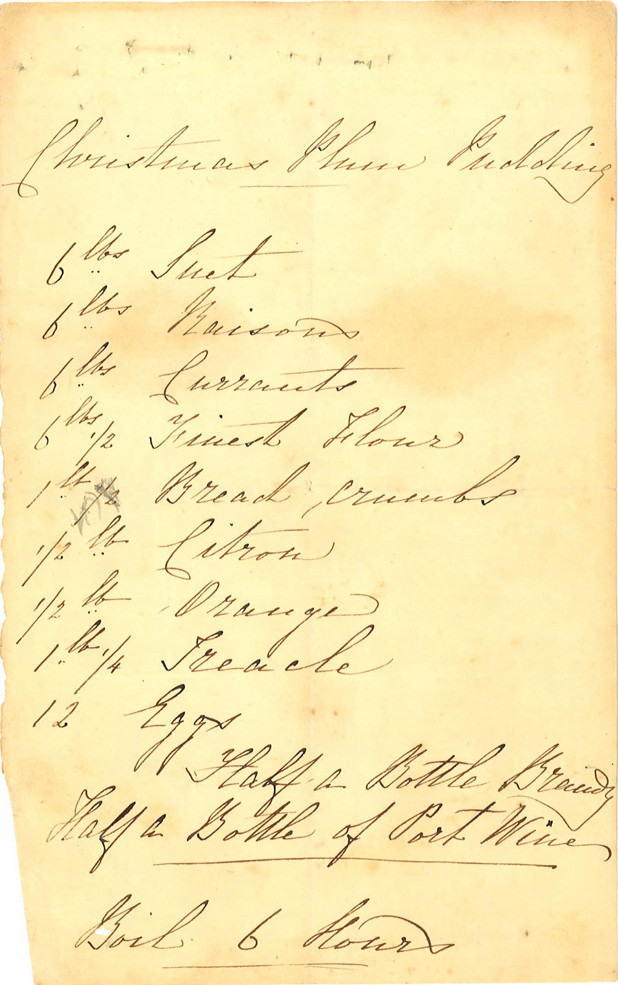 Christmas Plum Pudding
6 lbs Suet
6 lbs Raisons
6 lbs Currants
6 lbs 1/2 Finest Flour
1 lb Bread crumbs
1/2 lb Citron
1/2 lb Orange
1 lb 1/4 Treacle
12 Eggs
Half a Bottle Brandy
Half a Bottle of Port Wine
Boil 6 Hours